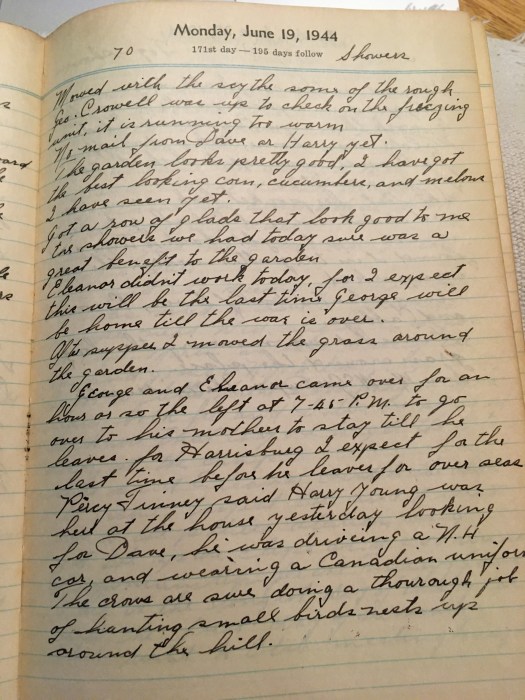 Monday, June 19, 1944
70 171st day — 195 days follow Showers
Mowed with the scythe some of the rough
Geo. Crowell was up to check on the freezing
unit, it is running too warm
No mail from Dave or Harry yet.
The garden looks pretty good, I have got
the best looking corn, cucumbers, and melons
I have seen yet.
Got a row of glads that look good to me
the showers we had today sure was a
great benefit to the garden
Eleanor didn't work today, for I expect
this will be the last time George will
be home till the war is over.
After supper I mowed the grass around
the garden.
George and Eleanor came over for an
hour or so the left at 7-45 P.M. to go
over to his mothers to stay till he
leaves. for Harrisburg I expect for the
last time before he leaves for over seas
Percy Finney said Harry Young was
here at the house yesterday looking
for Dave, he was driving a N.H
car, and wearing a Canadian uniform
The crows are sure doing a thourough job
of hunting small birds nests up
around the hill.